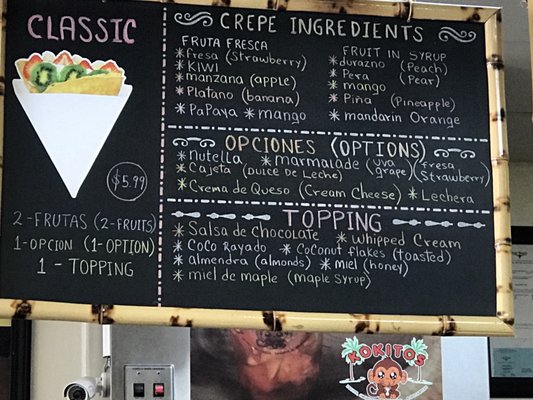 CLASSIC
$5.99
2-FRUTAS (2-FRUITS)
1-OPCION (1-OPTION)
1 - TOPPING
CREPE INGREDIENTS
FRUTA FRESCA
* fresa (Strawberry)
* KIWI
* manzana (apple)
* Platano (banana)
* PaPaya * mango
FRUIT IN SYRUP
* durazno (Peach)
* Pera (Pear)
* mango
* Piña (Pineapple)
* mandarin Orange
OPCIONES (OPTIONS)
* nutella * marmalade (uva grape) (fresa Strawberry)
* Cajeta (DULCE DE Leche)
* Crema de Queso (Cream Cheese) * Lechera
TOPPING
* Salsa de chocolate * whipped Cream
* COCO Rayado * Coconut flakes (toasted)
* almendra (almonds) * miel (honey)
* miel de maple (maple syrup)
KOKITOS